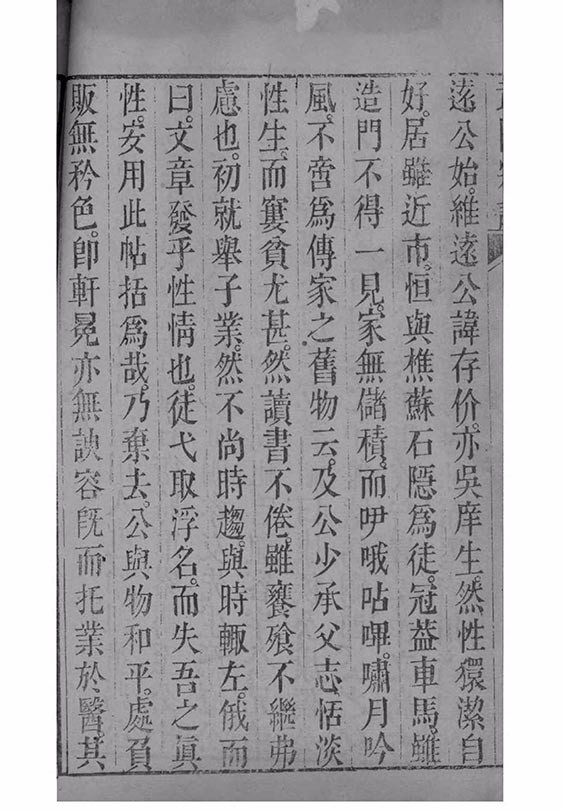 遠公始。維遠公諱存价。亦吳庠生。然性獧潔自
好。居雖近市。恒與樵蘇石隱爲徒。冠葢車馬。雖
造門不得一見。家無儲積。而吚哦呫嗶。嘯月吟
風。不啻爲傳家之舊物云。及公少承父志恬淡
性生。而窶貧尤甚。然讀書不倦。雖饔飧不繼弗
慮也。初就舉子業。然不尚時趨。與時輙左。俄而
曰。文章發乎性情也。徒弋取浮名。而失吾之眞
性。安用此帖括爲哉。乃棄去。公與物和平。處負
販無矜色。卽軒冕亦無諛容旣而托業於醫。其